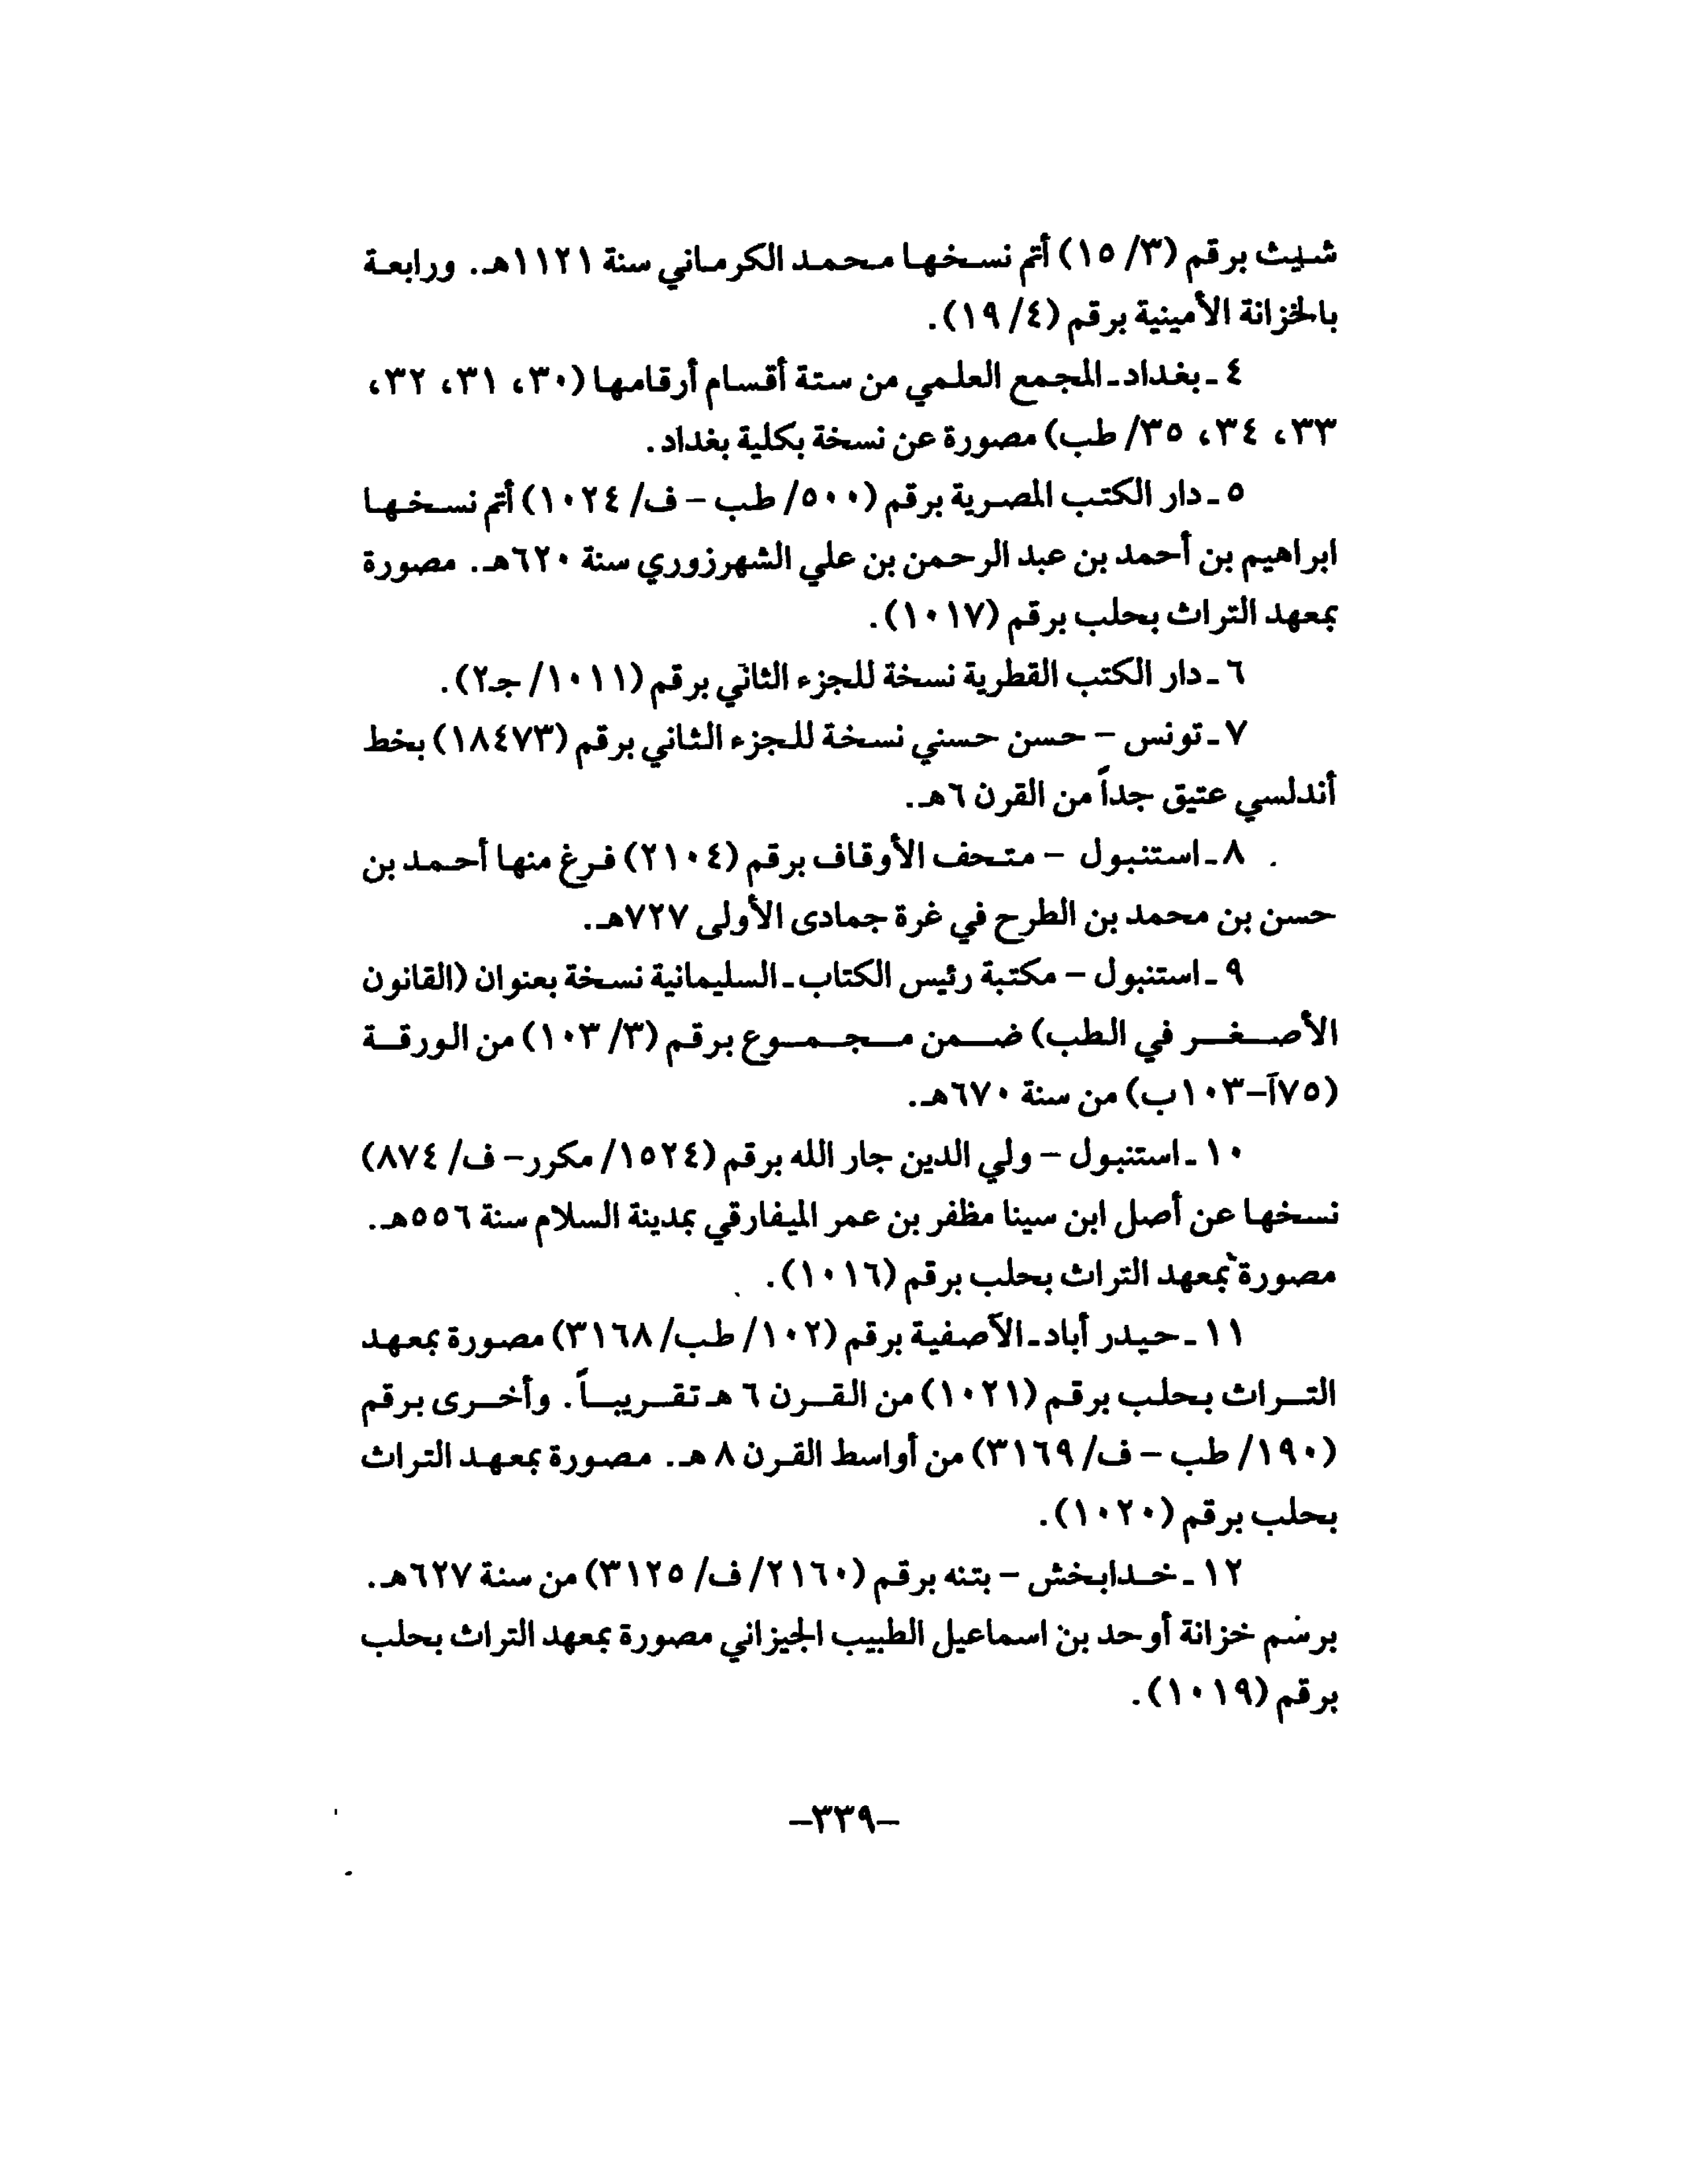 شيث برقم (٣/ ١٥) أتم نسخها محمد الكرماني سنة ١١٢١هـ. ورابعة
بالخزانة الأمينية برقم (٤/ ١٩).
٤ ـ بغداد ـ المجمع العلمي من ستة أقسام أرقامها (٣٠، ٣١، ٣٢،
٣٣، ٣٤، ٣٥/ طب) مصورة عن نسخة بكلية بغداد.
٥ ـ دار الكتب المصرية برقم (٥٠٠/ طب – ف/ ١٠٢٤) أتم نسخها
ابراهيم بن أحمد بن عبد الرحمن بن علي الشهرزوري سنة ٦٢٠هـ. مصورة
بمعهد التراث بحلب برقم (١٠١٧).
٦ ـ دار الكتب القطرية نسخة للجزء الثاني برقم (١٠١١/ جـ٢).
٧ ـ تونس – حسن حسني نسخة للجزء الثاني برقم (١٨٤٧٣) بخط
أندلسي عتيق جداً من القرن ٦هـ.
٨ ـ استنبول – متحف الأوقاف برقم (٢١٠٤) فرغ منها أحمد بن
حسن بن محمد بن الطرح في غرة جمادى الأولى ٧٢٧هـ.
٩ ـ استنبول – مكتبة رئيس الكتاب ـ السليمانية نسخة بعنوان (القانون
الأصغر في الطب) ضمن مجموع برقم (٣/ ١٠٣) من الورقة
(٧٥آ–١٠٣ب) من سنة ٦٧٠هـ.
١٠ ـ استنبول – ولي الدين جار الله برقم (١٥٢٤/ مكرر– ف/ ٨٧٤)
نسخها عن أصل ابن سينا مظفر بن عمر الميفارقي بمدينة السلام سنة ٥٥٦هـ.
مصورة بمعهد التراث بحلب برقم (١٠١٦).
١١ ـ حيدر أباد ـ الآصفية برقم (١٠٢/ طب/ ٣١٦٨) مصورة بمعهد
التراث بحلب برقم (١٠٢١) من القرن ٦ هـ تقريباً. وأخرى برقم
(١٩٠/ طب – ف/ ٣١٦٩) من أواسط القرن ٨ هـ. مصورة بمعهد التراث
بحلب برقم (١٠٢٠).
١٢ ـ خدابخش – بتنه برقم (٢١٦٠/ ف/ ٣١٢٥) من سنة ٦٢٧هـ.
برسم خزانة أوحد بن اسماعيل الطبيب الجيزاني مصورة بمعهد التراث بحلب
برقم (١٠١٩).
–٣٣٩–